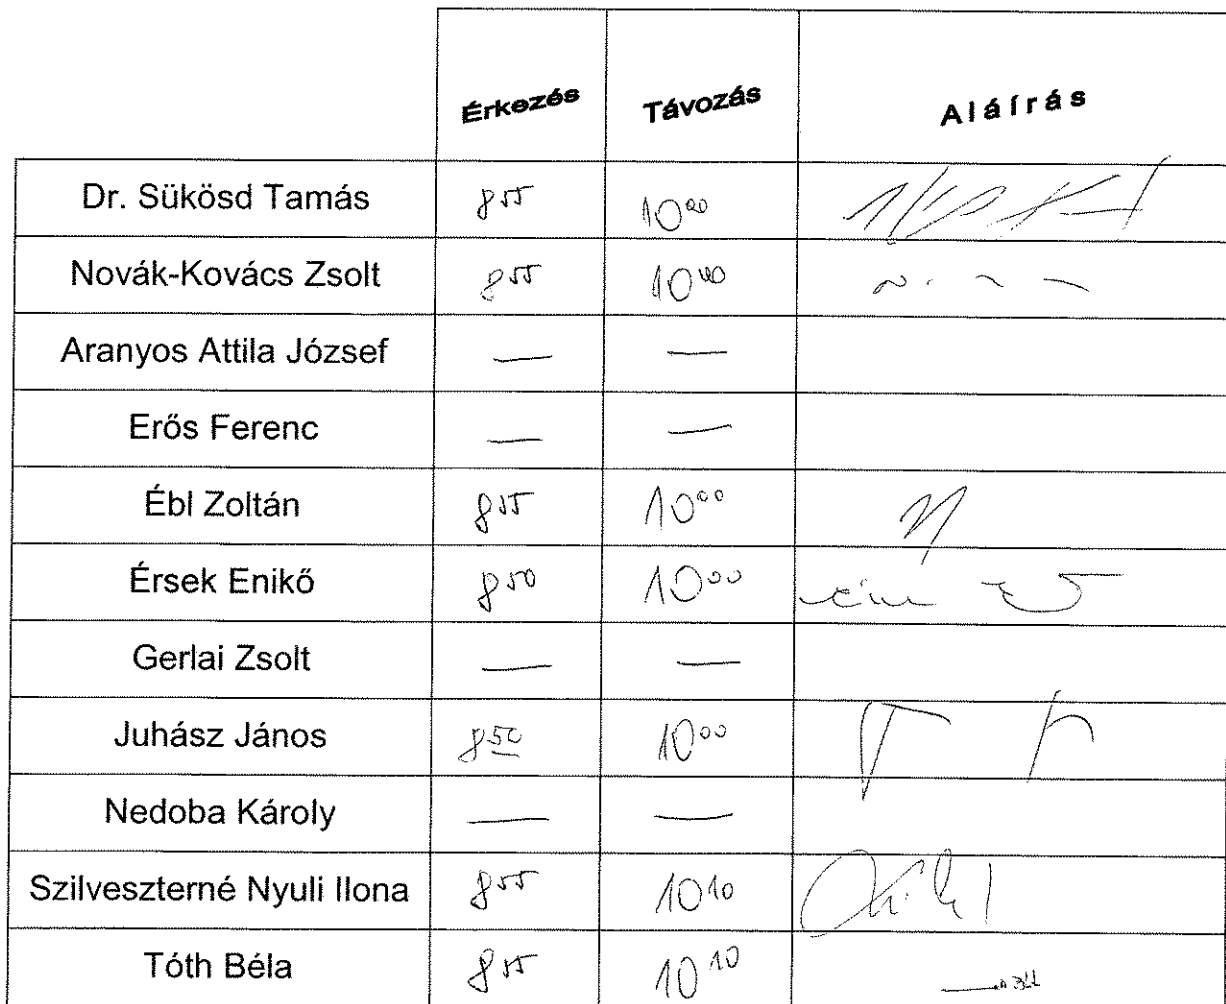 Érkezés Távozás Aláírás
Dr. Sükösd Tamás 8⁵⁵ 10⁰⁰
Novák-Kovács Zsolt 8⁵⁵
Aranyos Attila József — —
Erős Ferenc — —
Ébl Zoltán 8⁵⁵ 10⁰⁰
Érsek Enikő 8⁵⁰ 10⁰⁰
Gerlai Zsolt — —
Juhász János 8⁵⁰ 10⁰⁰
Nedoba Károly — —
Szilveszterné Nyuli Ilona 8⁵⁵ 10¹⁰
Tóth Béla 8⁵⁵ 10¹⁰